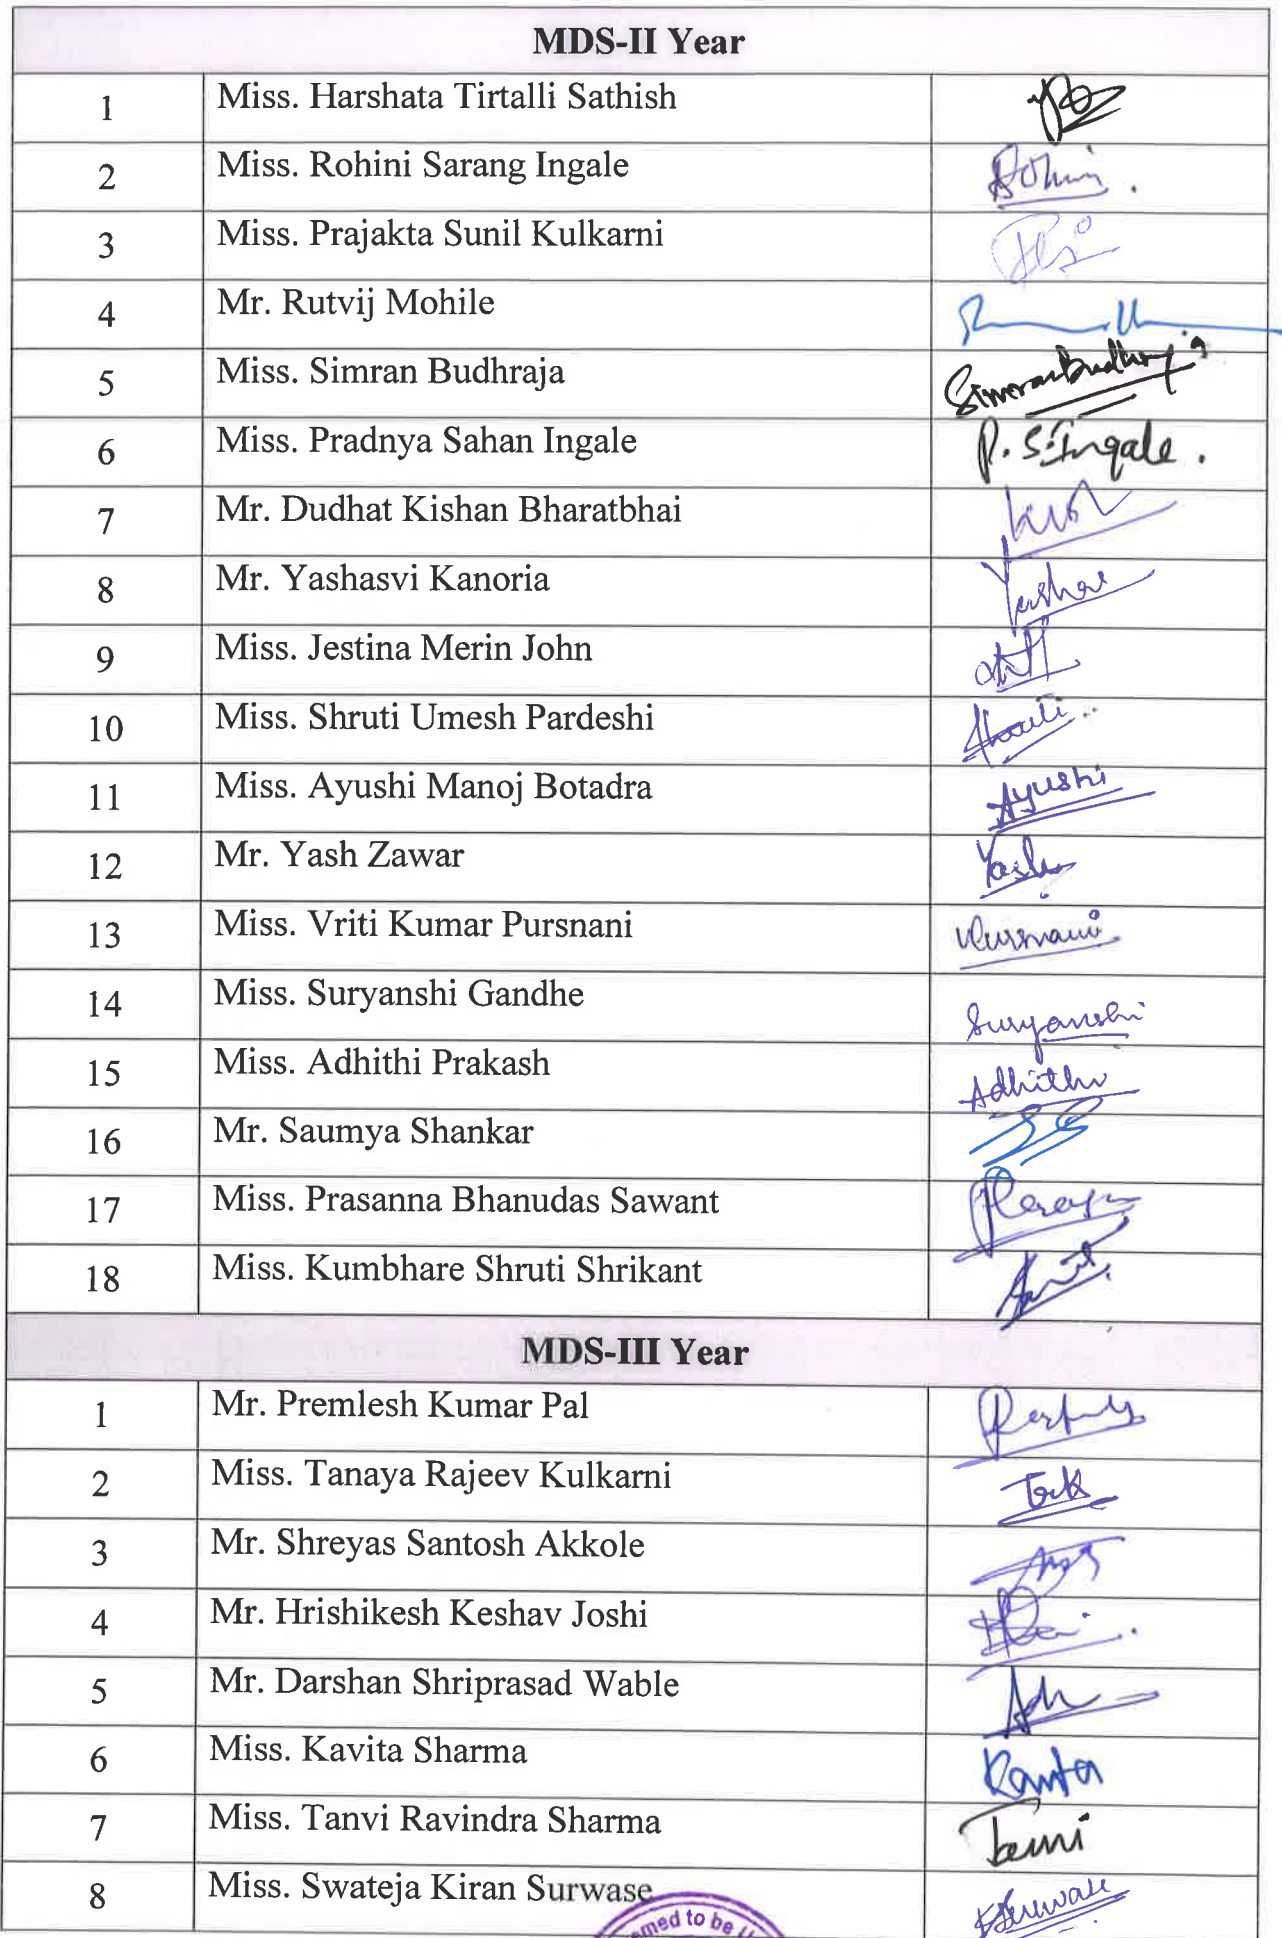 MDS-II Year
1 Miss. Harshata Tirtalli Sathish
2 Miss. Rohini Sarang Ingale Rohini.
3 Miss. Prajakta Sunil Kulkarni
4 Mr. Rutvij Mohile
5 Miss. Simran Budhraja
6 Miss. Pradnya Sahan Ingale P. S. Ingale.
7 Mr. Dudhat Kishan Bharatbhai
8 Mr. Yashasvi Kanoria
9 Miss. Jestina Merin John
10 Miss. Shruti Umesh Pardeshi
11 Miss. Ayushi Manoj Botadra Ayushi
12 Mr. Yash Zawar Yash
13 Miss. Vriti Kumar Pursnani
14 Miss. Suryanshi Gandhe Suryanshi
15 Miss. Adhithi Prakash Adhithi
16 Mr. Saumya Shankar
17 Miss. Prasanna Bhanudas Sawant
18 Miss. Kumbhare Shruti Shrikant
MDS-III Year
1 Mr. Premlesh Kumar Pal
2 Miss. Tanaya Rajeev Kulkarni
3 Mr. Shreyas Santosh Akkole
4 Mr. Hrishikesh Keshav Joshi
5 Mr. Darshan Shriprasad Wable
6 Miss. Kavita Sharma
7 Miss. Tanvi Ravindra Sharma
8 Miss. Swateja Kiran Surwase
to be